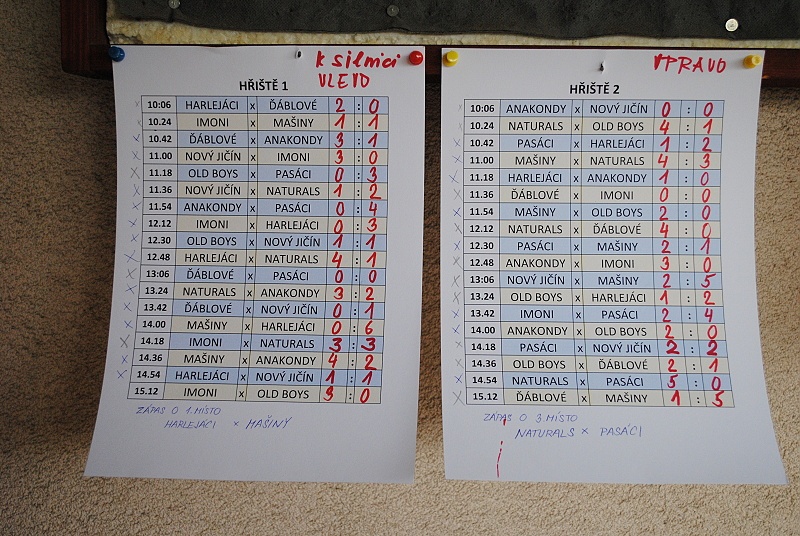 K silnici
VLEVO
HŘIŠTĚ 1
10:06 HARLEJÁCI x ĎÁBLOVÉ 2 : 0
10.24 IMONI x MAŠINY 1 : 1
10.42 ĎÁBLOVÉ x ANAKONDY 3 : 1
11.00 NOVÝ JIČÍN x IMONI 3 : 0
11.18 OLD BOYS x PASÁCI 0 : 3
11.36 NOVÝ JIČÍN x NATURALS 1 : 2
11.54 ANAKONDY x PASÁCI 0 : 4
12.12 IMONI x HARLEJÁCI 0 : 3
12.30 OLD BOYS x NOVÝ JIČÍN 1 : 1
12.48 HARLEJÁCI x NATURALS 4 : 1
13:06 ĎÁBLOVÉ x PASÁCI 0 : 0
13.24 NATURALS x ANAKONDY 3 : 2
13.42 ĎÁBLOVÉ x NOVÝ JIČÍN 0 : 1
14.00 MAŠINY x HARLEJÁCI 0 : 6
14.18 IMONI x NATURALS 3 : 3
14.36 MAŠINY x ANAKONDY 4 : 2
14.54 HARLEJÁCI x NOVÝ JIČÍN 1 : 1
15.12 IMONI x OLD BOYS 3 : 0
ZÁPAS O 1.MÍSTO
HARLEJÁCI x MAŠINY
VPRAVO
HŘIŠTĚ 2
10:06 ANAKONDY x NOVÝ JIČÍN 0 : 0
10.24 NATURALS x OLD BOYS 4 : 1
10.42 PASÁCI x HARLEJÁCI 1 : 2
11.00 MAŠINY x NATURALS 4 : 3
11.18 HARLEJÁCI x ANAKONDY 1 : 0
11.36 ĎÁBLOVÉ x IMONI 0 : 0
11.54 MAŠINY x OLD BOYS 2 : 0
12.12 NATURALS x ĎÁBLOVÉ 4 : 0
12.30 PASÁCI x MAŠINY 2 : 1
12.48 ANAKONDY x IMONI 3 : 0
13:06 NOVÝ JIČÍN x MAŠINY 2 : 5
13.24 OLD BOYS x HARLEJÁCI 1 : 2
13.42 IMONI x PASÁCI 2 : 4
14.00 ANAKONDY x OLD BOYS 2 : 0
14.18 PASÁCI x NOVÝ JIČÍN 2 : 2
14.36 OLD BOYS x ĎÁBLOVÉ 2 : 1
14.54 NATURALS x PASÁCI 5 : 0
15.12 ĎÁBLOVÉ x MAŠINY 1 : 5
ZÁPAS O 3.MÍSTO
NATURALS x PASÁCI